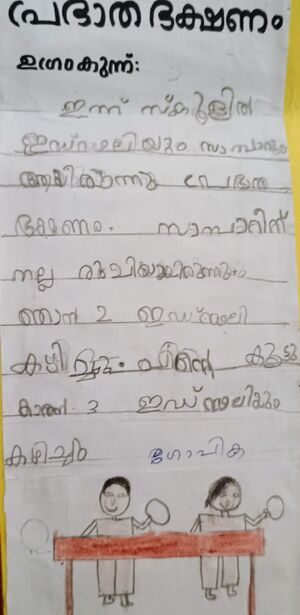 പ്രഭാത ഭക്ഷണം
ഉഗ്രംകുന്ന്:
ഇന്ന് സ്കൂളിൽ
ഇഡ്ഡലിയും സാമ്പാറും
ആയിരുന്നു പ്രഭാത
ഭക്ഷണം. സാമ്പാറിന്
നല്ല രുചിയായിരുന്നു
ഞാൻ 2 ഇഡ്ഡലി
കഴിച്ചു. എന്റെ കൂട്ടു
കാരൻ 3 ഇഡ്ഡലിയും
കഴിച്ചു ഗോപിക